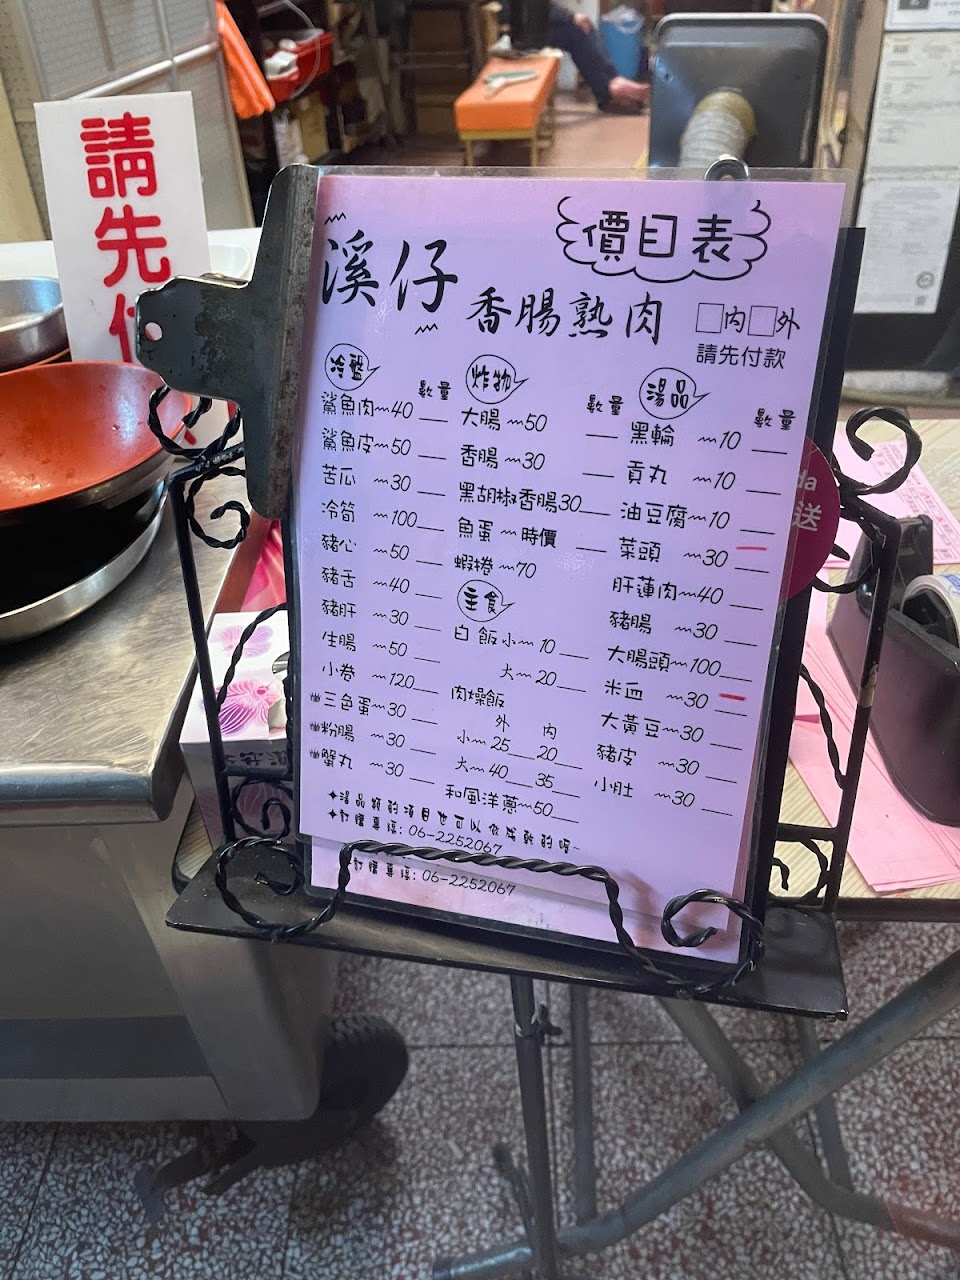 請先付
價目表
溪仔
香腸熟肉
□內□外
請先付款
冷盤
數量
鯊魚肉~40
鯊魚皮~50
苦瓜~30
冷筍~100
豬心~50
豬舌~40
豬肝~30
生腸~50
小卷~120
三色蛋~30
粉腸~30
蟹丸~30
炸物
數量
大腸~50
香腸~30
黑胡椒香腸30
魚蛋~時價
蝦捲~70
主食
白飯小~10
大~20
肉燥飯
外 內
小~25 20
大~40 35
和風洋蔥~50
湯品
數量
黑輪~10
貢丸~10
油豆腐~10
菜頭~30
肝蓮肉~40
豬腸~30
大腸頭~100
米血~30
大黃豆~30
豬皮~30
小肚~30
✦湯品類的項目也可以做成乾的喔~
✦訂購專線: 06-2252067
訂購專線: 06-2252067
da
送